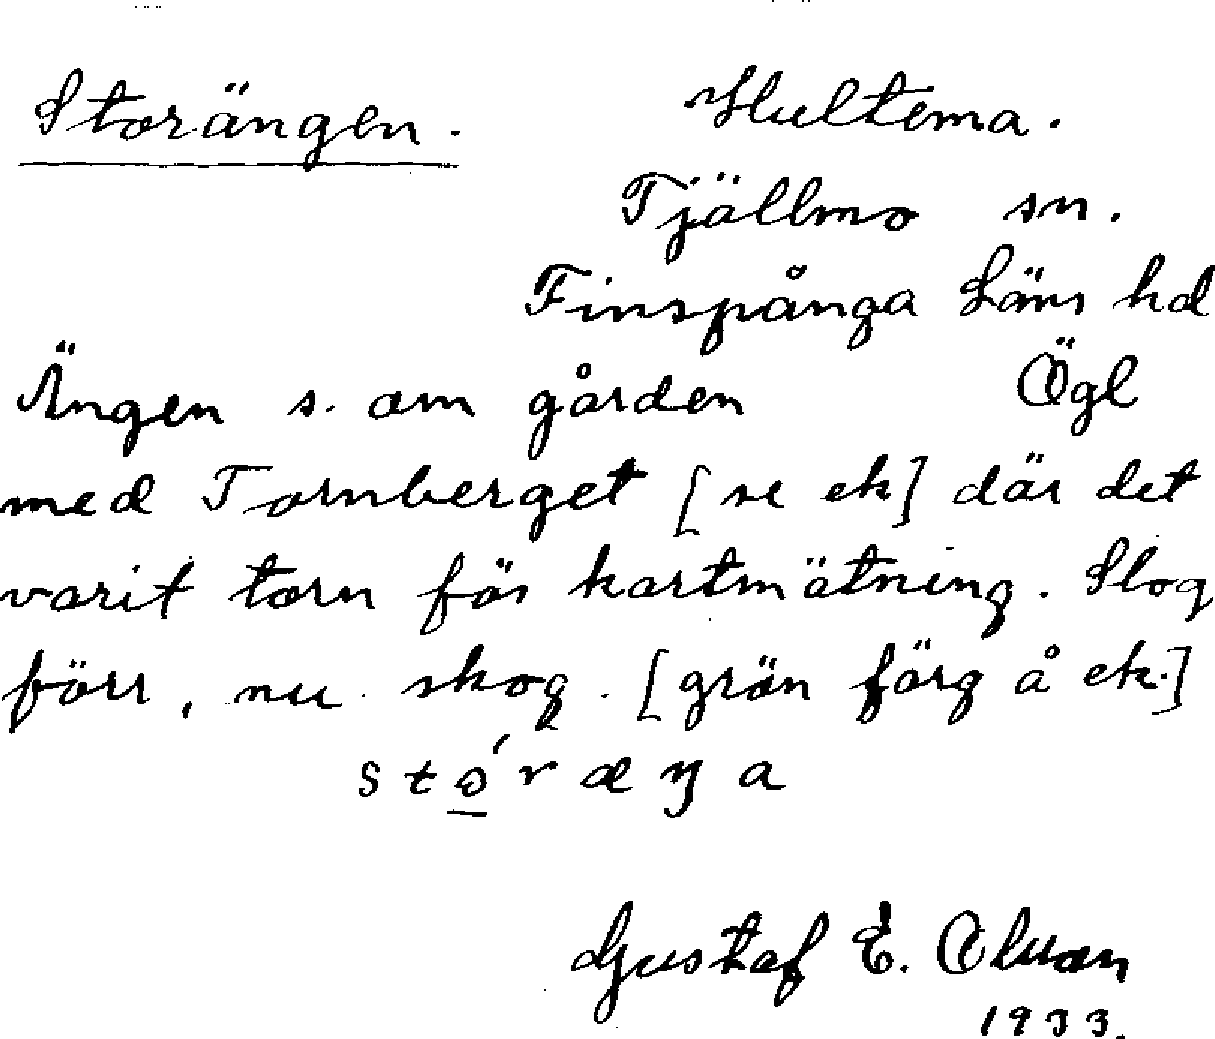 Storängen. Hultema.
Tjällmo sn.
Finspånga Läns hd
Ängen s. om gården Ögl
med Tornberget [se ek] där det
varit torn för kartmätning. Slog
förr, nu skog. [grön färg å ek.]
stǿræŋa
Gustaf E. Olsson
1933.